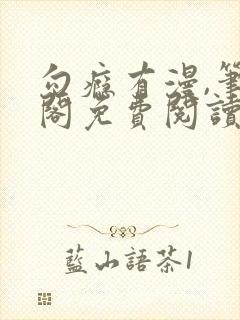 勿癮有漫,筆
閣免費閱讀
藍山語茶1